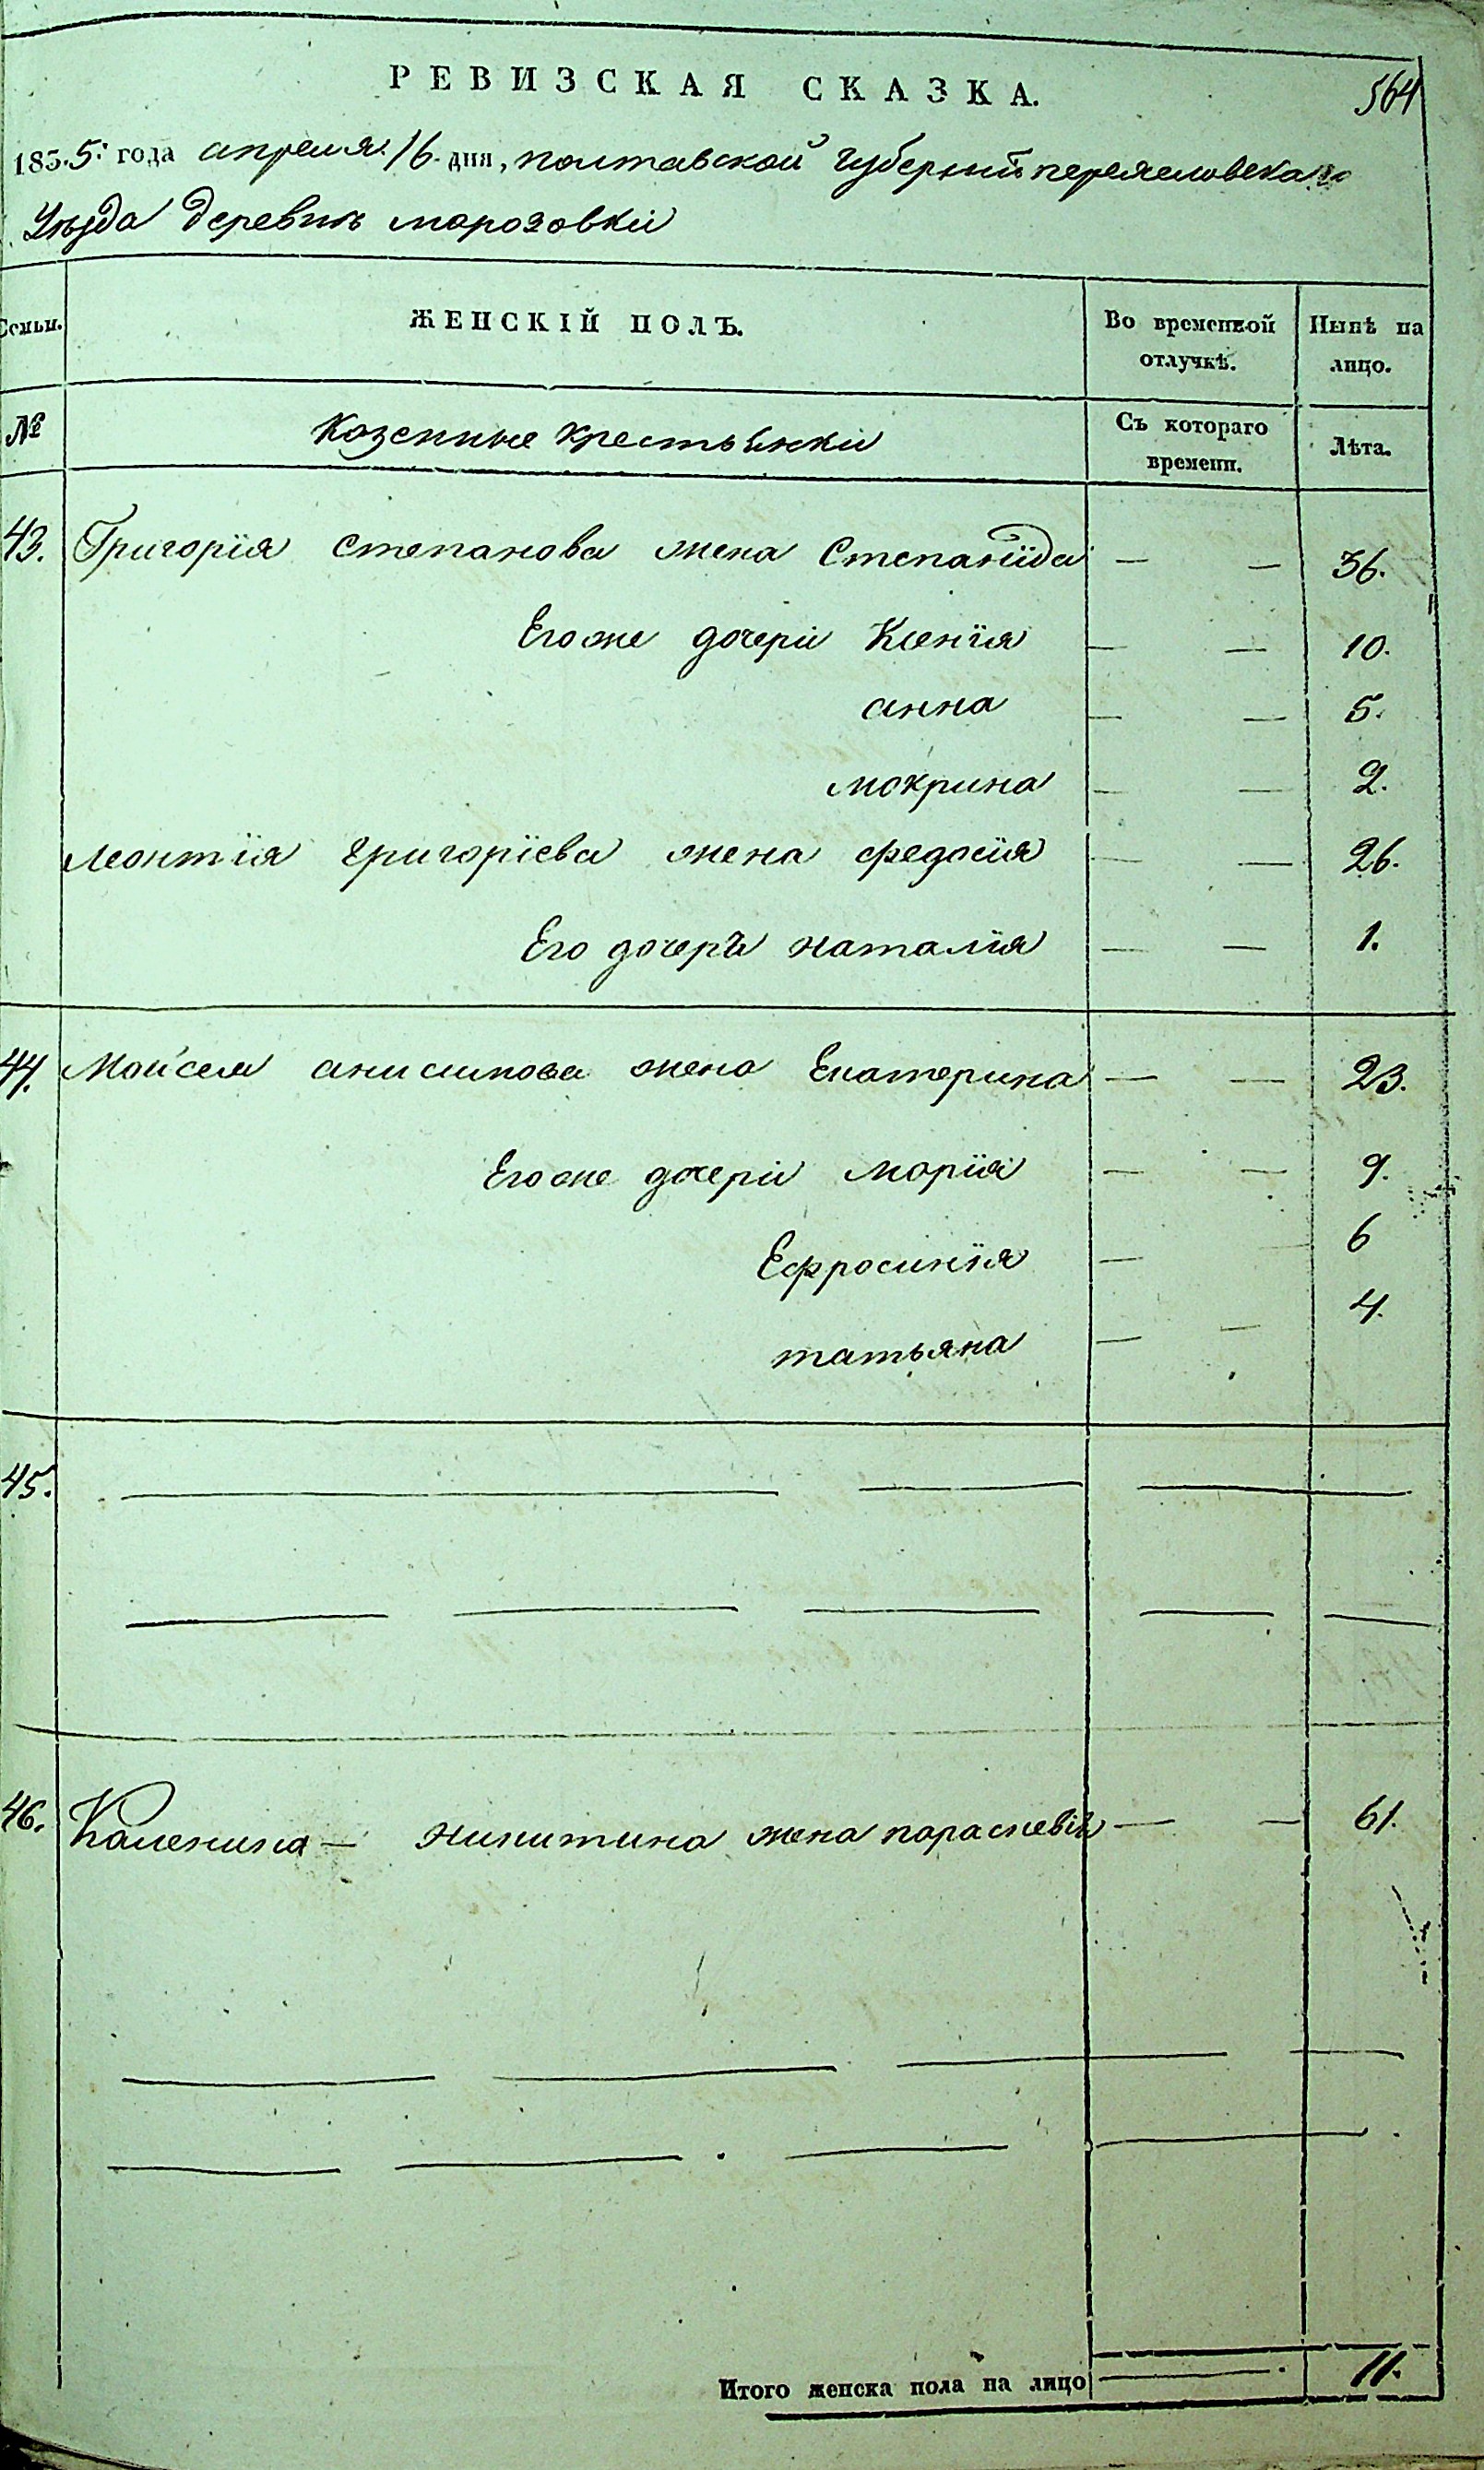 РЕВИЗСКАЯ СКАЗКА.
564
1835: года апреля 16 дня, полтавской губерний переясловскаго
Уѣзда деревнѣ морозовки
Семьи.
ЖЕНСКІЙ ПОЛЪ.
Во временной отлучкѣ.
Нынѣ на лицо.
№
Козенные крестьянки
Съ котораго времени.
Лѣта.
43. Григорія степанова жена Степанида — — 36.
Егоже дочери Ксенія — — 10.
анна — — 5.
мокрина — — 2.
леонтія григоріева жена федосія — — 26.
Его дочеръ наталія — — 1.
44. Мойсея анисимова жена Екатерина — — 23.
Егоже дочери марія — — 9.
Ефросинія — — 6
татьяна — — 4.
45.
46. Каленика — никитина жена параскевія — — 61.
Итого женска пола на лицо — 11.